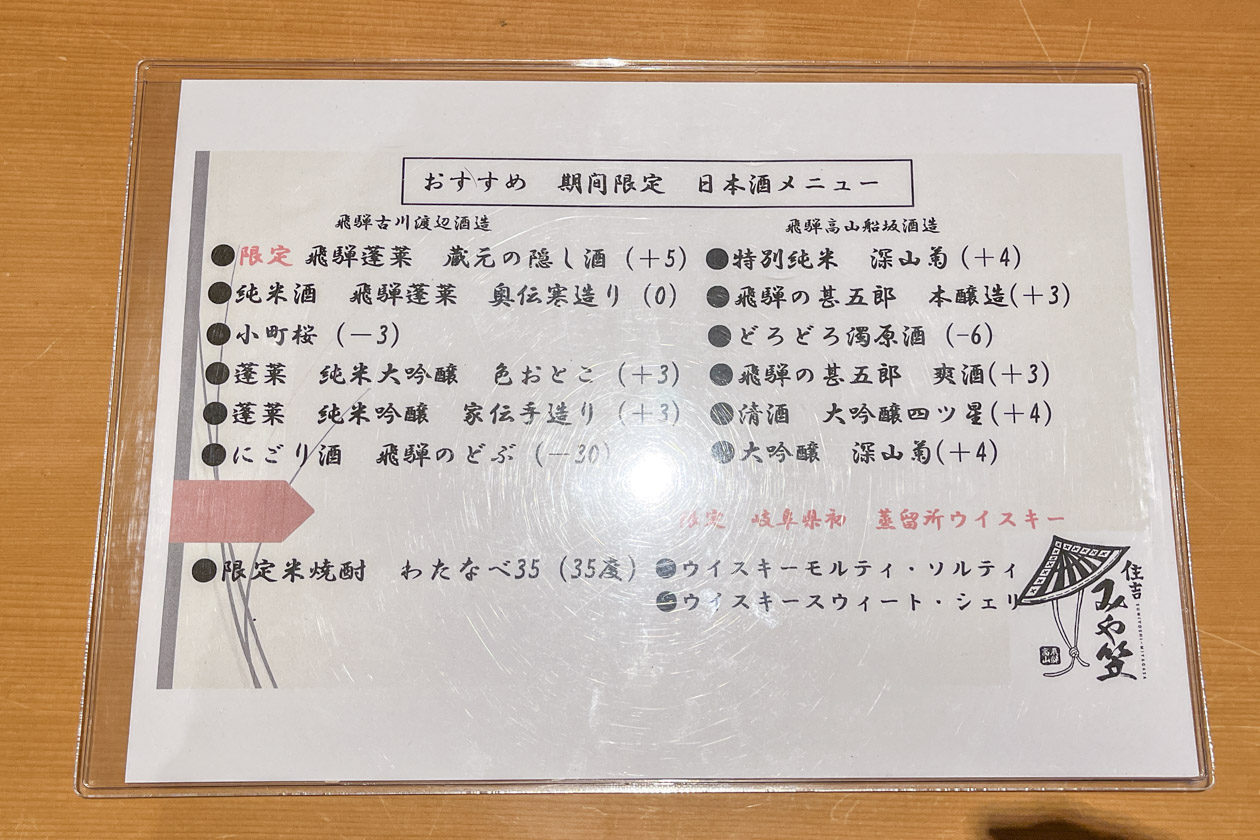 おすすめ　期間限定　日本酒メニュー
飛騨古川渡辺酒造
●限定 飛騨蓬莱　蔵元の隠し酒 (+5)
●純米酒　飛騨蓬莱　奥伝寒造り (0)
●小町桜 (−3)
●蓬莱　純米大吟醸　色おとこ (+3)
●蓬莱　純米吟醸　家伝手造り (+3)
●にごり酒　飛騨のどぶ (−30)
●限定米焼酎　わたなべ35 (35度)
飛騨高山船坂酒造
●特別純米　深山菊 (+4)
●飛騨の甚五郎　本醸造(+3)
●どろどろ濁原酒 (-6)
●飛騨の甚五郎　爽酒(+3)
●清酒　大吟醸四ツ星(+4)
●大吟醸　深山菊(+4)
限定　岐阜県初　蒸留所ウイスキー
●ウイスキーモルティ・ソルティ
●ウイスキースウィート・シェリ
住吉
みや笠
SUMIYOSHI-MIYAGASA